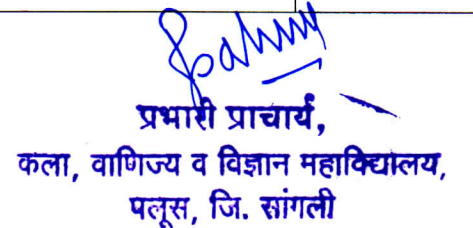 प्रभारी प्राचार्य,
कला, वाणिज्य व विज्ञान महाविद्यालय,
पलूस, जि. सांगली